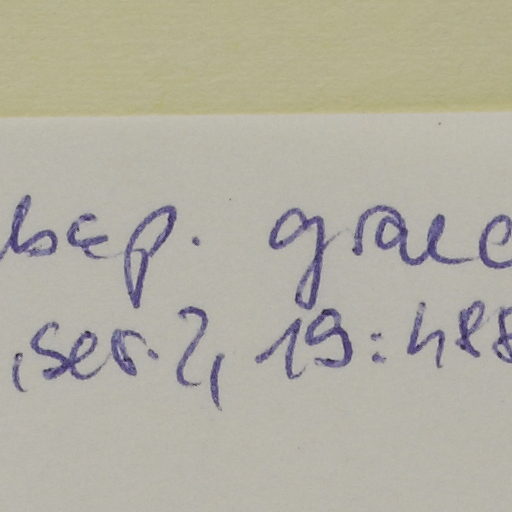 bsp. graec
, ser. 2, 19: 488